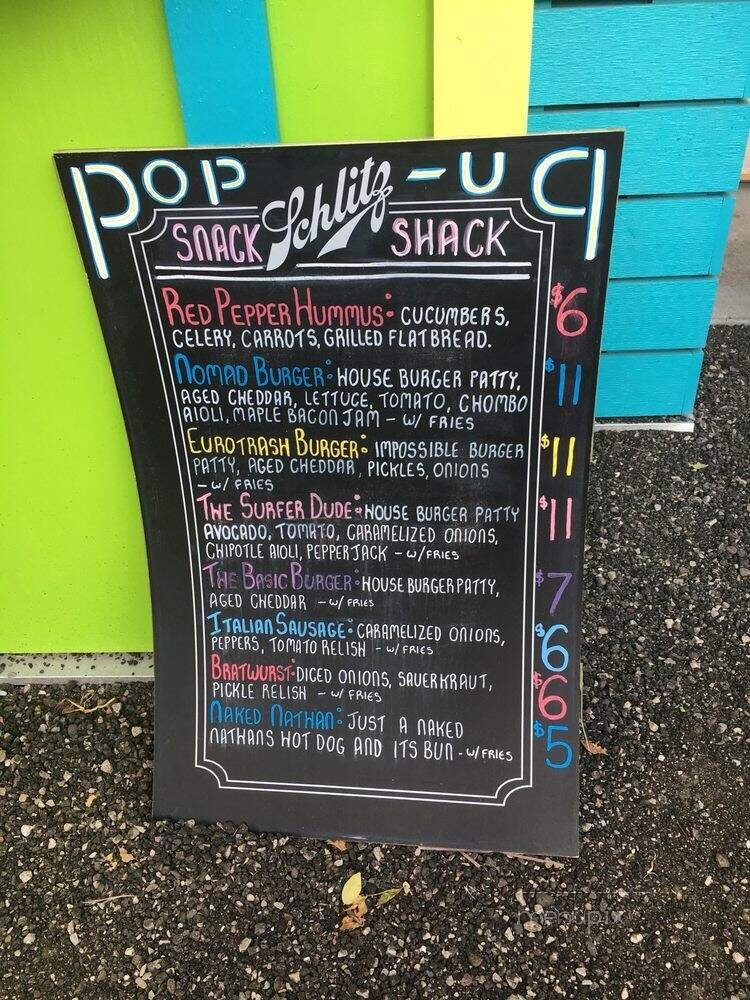 POP -UP
SNACK Schlitz SHACK
RED PEPPER HUMMUS: CUCUMBERS, $6
CELERY, CARROTS, GRILLED FLATBREAD.
NOMAD BURGER: HOUSE BURGER PATTY, $11
AGED CHEDDAR, LETTUCE, TOMATO, CHOMBO
AIOLI, MAPLE BACON JAM - W/ FRIES
EUROTRASH BURGER: IMPOSSIBLE BURGER $11
PATTY, AGED CHEDDAR, PICKLES, ONIONS
- W/ FRIES
THE SURFER DUDE: HOUSE BURGER PATTY $11
AVOCADO, TOMATO, CARAMELIZED ONIONS,
CHIPOTLE AIOLI, PEPPERJACK - W/FRIES
THE BASIC BURGER: HOUSE BURGER PATTY, $7
AGED CHEDDAR - W/ FRIES
ITALIAN SAUSAGE: CARAMELIZED ONIONS, $6
PEPPERS, TOMATO RELISH - W/ FRIES
BRATWURST: DICED ONIONS, SAUERKRAUT, $6
PICKLE RELISH - W/ FRIES
NAKED NATHAN: JUST A NAKED $5
NATHANS HOT DOG AND ITS BUN - W/FRIES
menupix